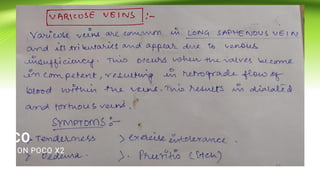 VARICOSE VEINS :-
Varicose veins are common in LONG SAPHENOUS VEIN
and its tributaries and appear due to venous
insufficiency. This occurs when the valves become
incompetent, resulting in retrograde flow of
blood within the veins. This results in dialated
and tortuous veins.
SYMPTOMS :-
Tenderness > exercise intolerance.
> Oedema. >. Pruritis (itch)
CO
ON POCO X2